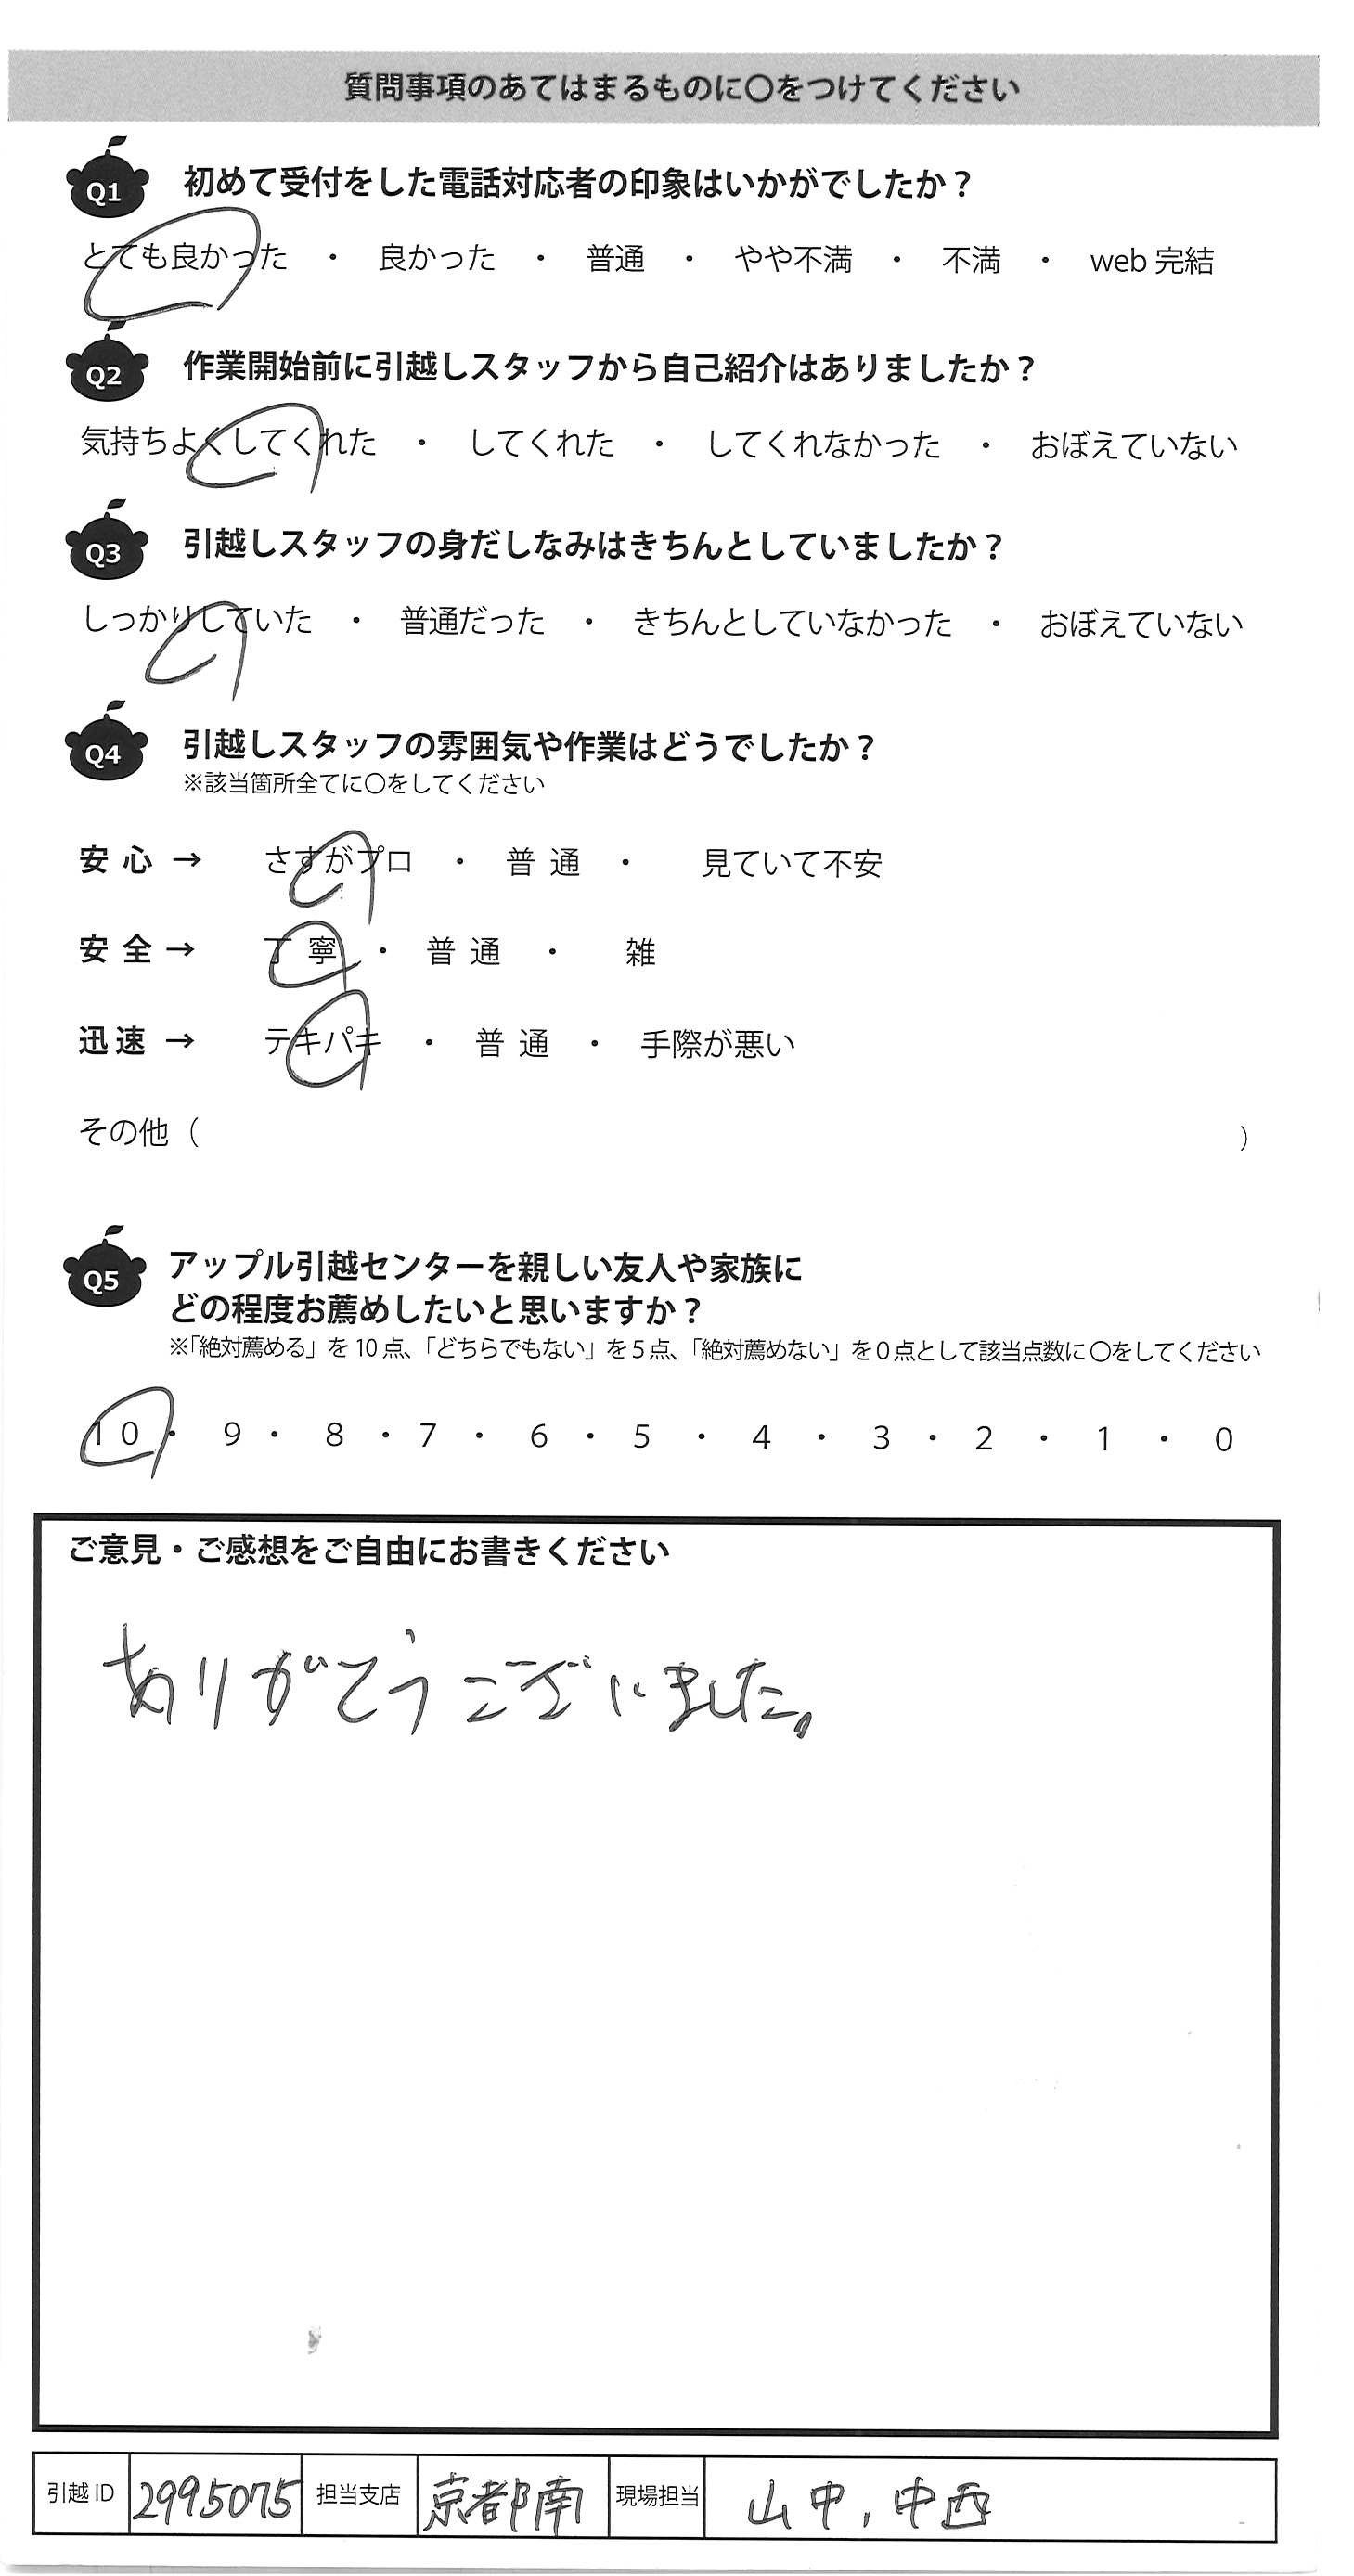 質問事項のあてはまるものに〇をつけてください
Q1 初めて受付をした電話対応者の印象はいかがでしたか？
とても良かった ・ 良かった ・ 普通 ・ やや不満 ・ 不満 ・ web 完結
Q2 作業開始前に引越しスタッフから自己紹介はありましたか？
気持ちよくしてくれた ・ してくれた ・ してくれなかった ・ おぼえていない
Q3 引越しスタッフの身だしなみはきちんとしていましたか？
しっかりしていた ・ 普通だった ・ きちんとしていなかった ・ おぼえていない
Q4 引越しスタッフの雰囲気や作業はどうでしたか？
※該当箇所全てに〇をしてください
安心 → さすがプロ ・ 普通 ・ 見ていて不安
安全 → 丁寧 ・ 普通 ・ 雑
迅速 → テキパキ ・ 普通 ・ 手際が悪い
その他（ ）
Q5 アップル引越センターを親しい友人や家族に
どの程度お薦めしたいと思いますか？
※「絶対薦める」を 10 点、「どちらでもない」を 5 点、「絶対薦めない」を 0 点として該当点数に 〇をしてください
10 ・ 9 ・ 8 ・ 7 ・ 6 ・ 5 ・ 4 ・ 3 ・ 2 ・ 1 ・ 0
ご意見・ご感想をご自由にお書きください
ありがとうございました。
引越 ID 2995075 担当支店 京都南 現場担当 山中, 中西